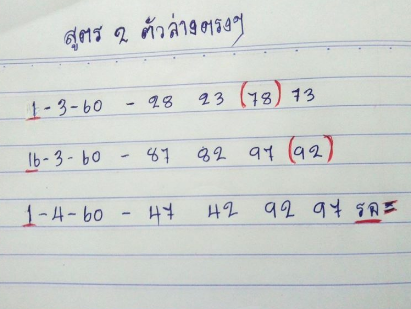 สูตร 2 ตัวล่างตรงๆ
1-3-60 - 28 23 (78) 73
16-3-60 - 87 82 97 (92)
1-4-60 - 47 42 92 97